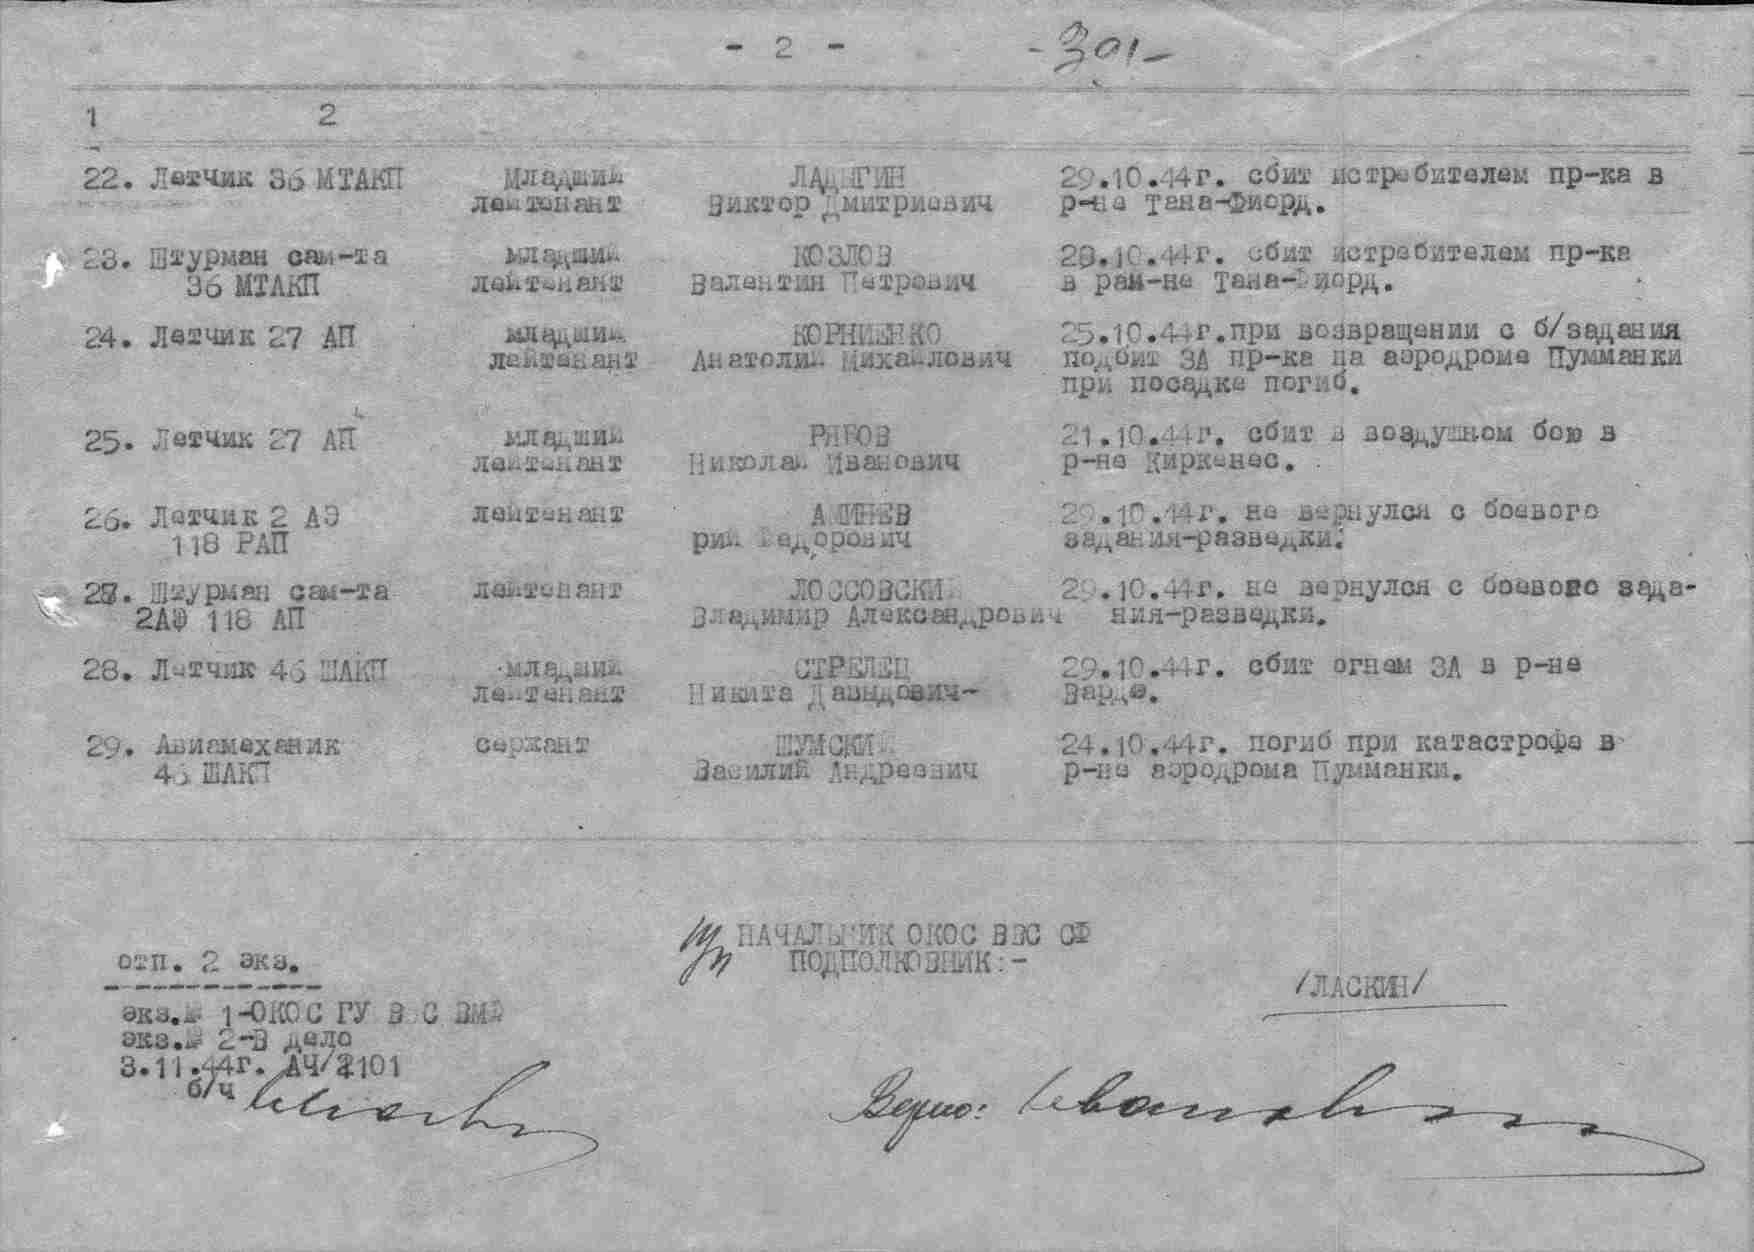 - 2 -   -301-
1   2
22. Летчик 36 МТАКП   Младший   ЛАДЫГИН   29.10.44г. сбит истребителем пр-ка в
лейтенант   Виктор Дмитриевич   р-не Тана-Фиорд.
23. Штурман сам-та   младший   КОЗЛОВ   28.10.44г. сбит истребителем пр-ка
36 МТАКП   лейтенант   Валентин Петрович   в рай-не Тана-Фиорд.
24. Летчик 27 АП   младший   КОРНИЕНКО   25.10.44г.при возвращении с б/задания
лейтенант   Анатолий Михайлович   подбит ЗА пр-ка на аэродроме Пумманки
при посадке погиб.
25. Летчик 27 АП   младший   РЯБОВ   21.10.44г. сбит в воздушном бою в
лейтенант   Николай Иванович   р-не Киркенес.
26. Летчик 2 АЭ   лейтенант   29.10.44г. не вернулся с боевого
118 РАП   задания-разведки.
27. Штурман сам-та   лейтенант   ЛОССОВСКИЙ   29.10.44г. не вернулся с боевово зада-
2АЭ 118 АП   Владимир Александрович   ния-разведки.
28. Летчик 46 ШАКП   младший   СТРЕЛЕЦ   29.10.44г. сбит огнем ЗА в р-не
лейтенант   Никита Давыдович-   Вардэ.
29. Авиамеханик   сержант   ШУМСКИЙ   24.10.44г. погиб при катастрофе в
46 ШАКП   Василий Андреевич   р-не аэродрома Пумманки.
НАЧАЛЬНИК ОКОС ВВС СФ
ПОДПОЛКОВНИК:-
/ЛАСКИН/
отп. 2 экз.
экз.№ 1-ОКОС ГУ ВВС ВМФ
экз.№ 2-В дело
3.11.44г. АЧ/2101
б/ч
Верно: